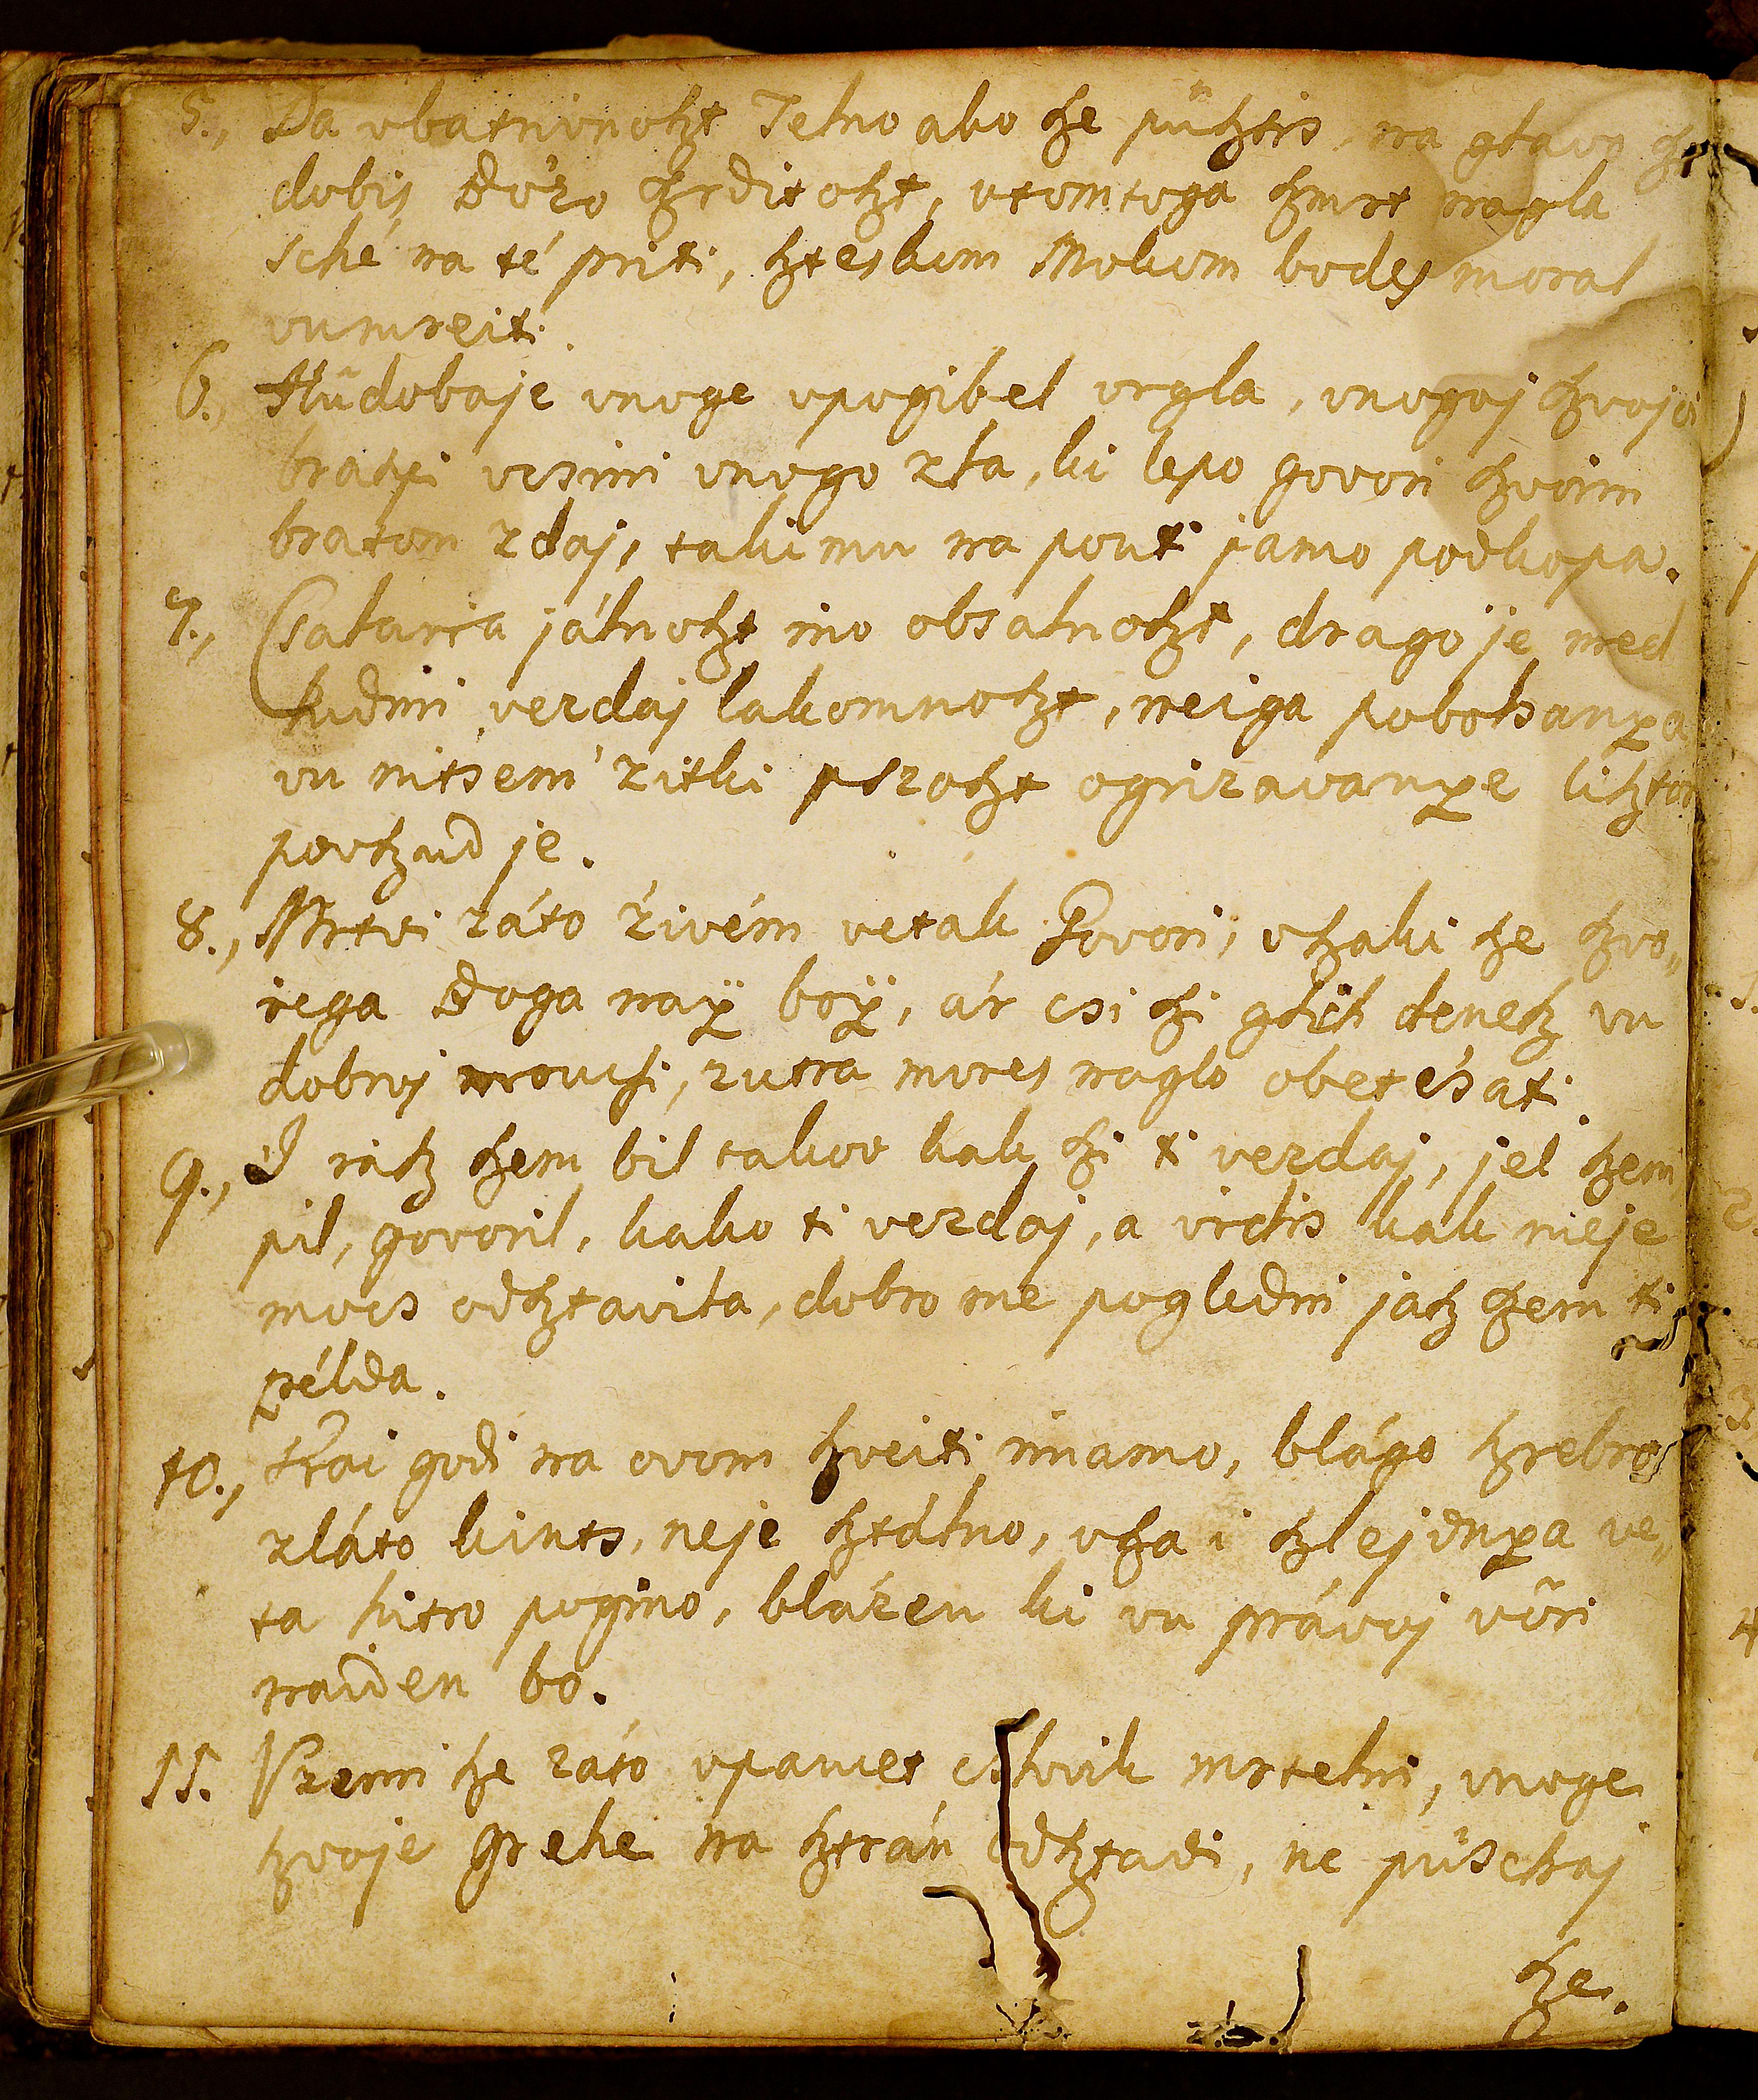 5., Da vbatrivnoßt Telno ako ße püßtis, na glavo ße
dobis Bo'zo ßrditoßt, vtomtoga ßmrt nagla
sché na té priti, ßteskom Mokom bodes moral
vumreiti.
6., Hüdobaje vnoge vpogibel vrgla, vnogoj ßvojoi
bratßi vcsini vnogo zla, ki lepo govori ßvoim
bratom zdaj, taki mu na pouti jamo podkopa.
7., Csalarja játnoßt ino obsalnoßt, drago je med
ludmi vezdaj lakomnoßt, neiga pobolsanya
vu nitsem 'zitki pszoßt ogrizavanye lißtor
poußud je.
8., Mrtvi záto 'zivém vetak Govori, vßaki ße ßvo„
iega Boga nay boy, ár csi ßi glih deneß vu
dobroj moucsi, zutra mores naglo obete'sati.
9., I iáß ßem bil takov kak ßi ti vezdaj, jel ßem
pil, govoril, kako ti vezdaj, a vidis kak nieje
mocs odßtavila, dobro me pogledni jaß ßem ti
példa.
10., Kai godi na ovom ßveiti imamo, blágo ßrebro
zláto kints, neje ßtálno, vßa i ßlejdnya ve„
ta hitro pogino, blázen ki vu právoj vöri
naiden bo.
11. Vzemi ße záto vpamet cslovik mrtelni, vnoge
ßvoje Grehe na ßtrán odßtavi, ne püschaj
ße.